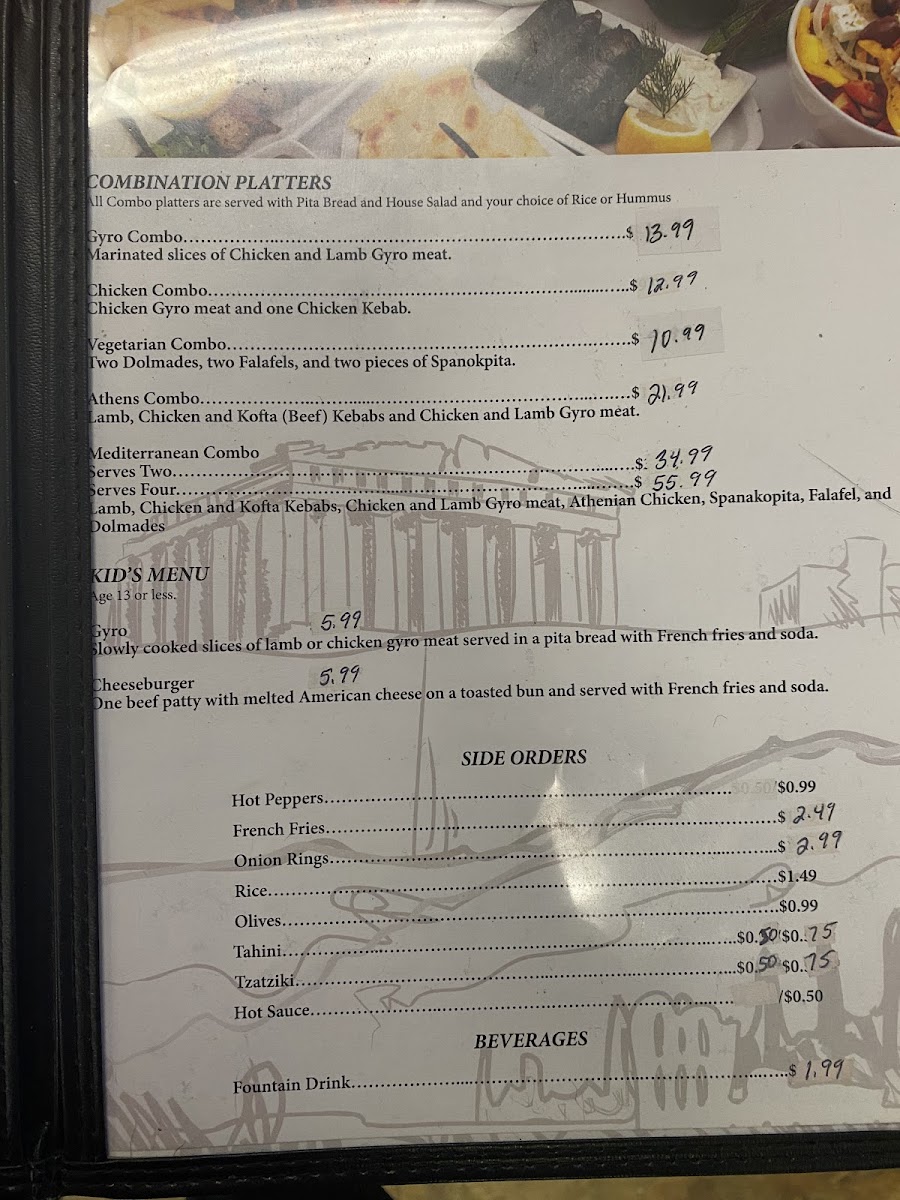 COMBINATION PLATTERS
All Combo platters are served with Pita Bread and House Salad and your choice of Rice or Hummus
Gyro Combo.....$ 13.99
Marinated slices of Chicken and Lamb Gyro meat.
Chicken Combo.....$ 12.99
Chicken Gyro meat and one Chicken Kebab.
Vegetarian Combo.....$ 10.99
Two Dolmades, two Falafels, and two pieces of Spanokpita.
Athens Combo.....$ 21.99
Lamb, Chicken and Kofta (Beef) Kebabs and Chicken and Lamb Gyro meat.
Mediterranean Combo
Serves Two.....$ 34.99
Serves Four.....$ 55.99
Lamb, Chicken and Kofta Kebabs, Chicken and Lamb Gyro meat, Athenian Chicken, Spanakopita, Falafel, and
Dolmades
KID'S MENU
Age 13 or less.
Gyro 5.99
Slowly cooked slices of lamb or chicken gyro meat served in a pita bread with French fries and soda.
Cheeseburger 5.99
One beef patty with melted American cheese on a toasted bun and served with French fries and soda.
SIDE ORDERS
Hot Peppers.....$0.50/$0.99
French Fries.....$ 2.49
Onion Rings.....$ 2.99
Rice.....$1.49
Olives.....$0.99
Tahini.....$0.50/$0..75
Tzatziki.....$0.50 $0..75
Hot Sauce..... /$0.50
BEVERAGES
Fountain Drink.....$ 1.99